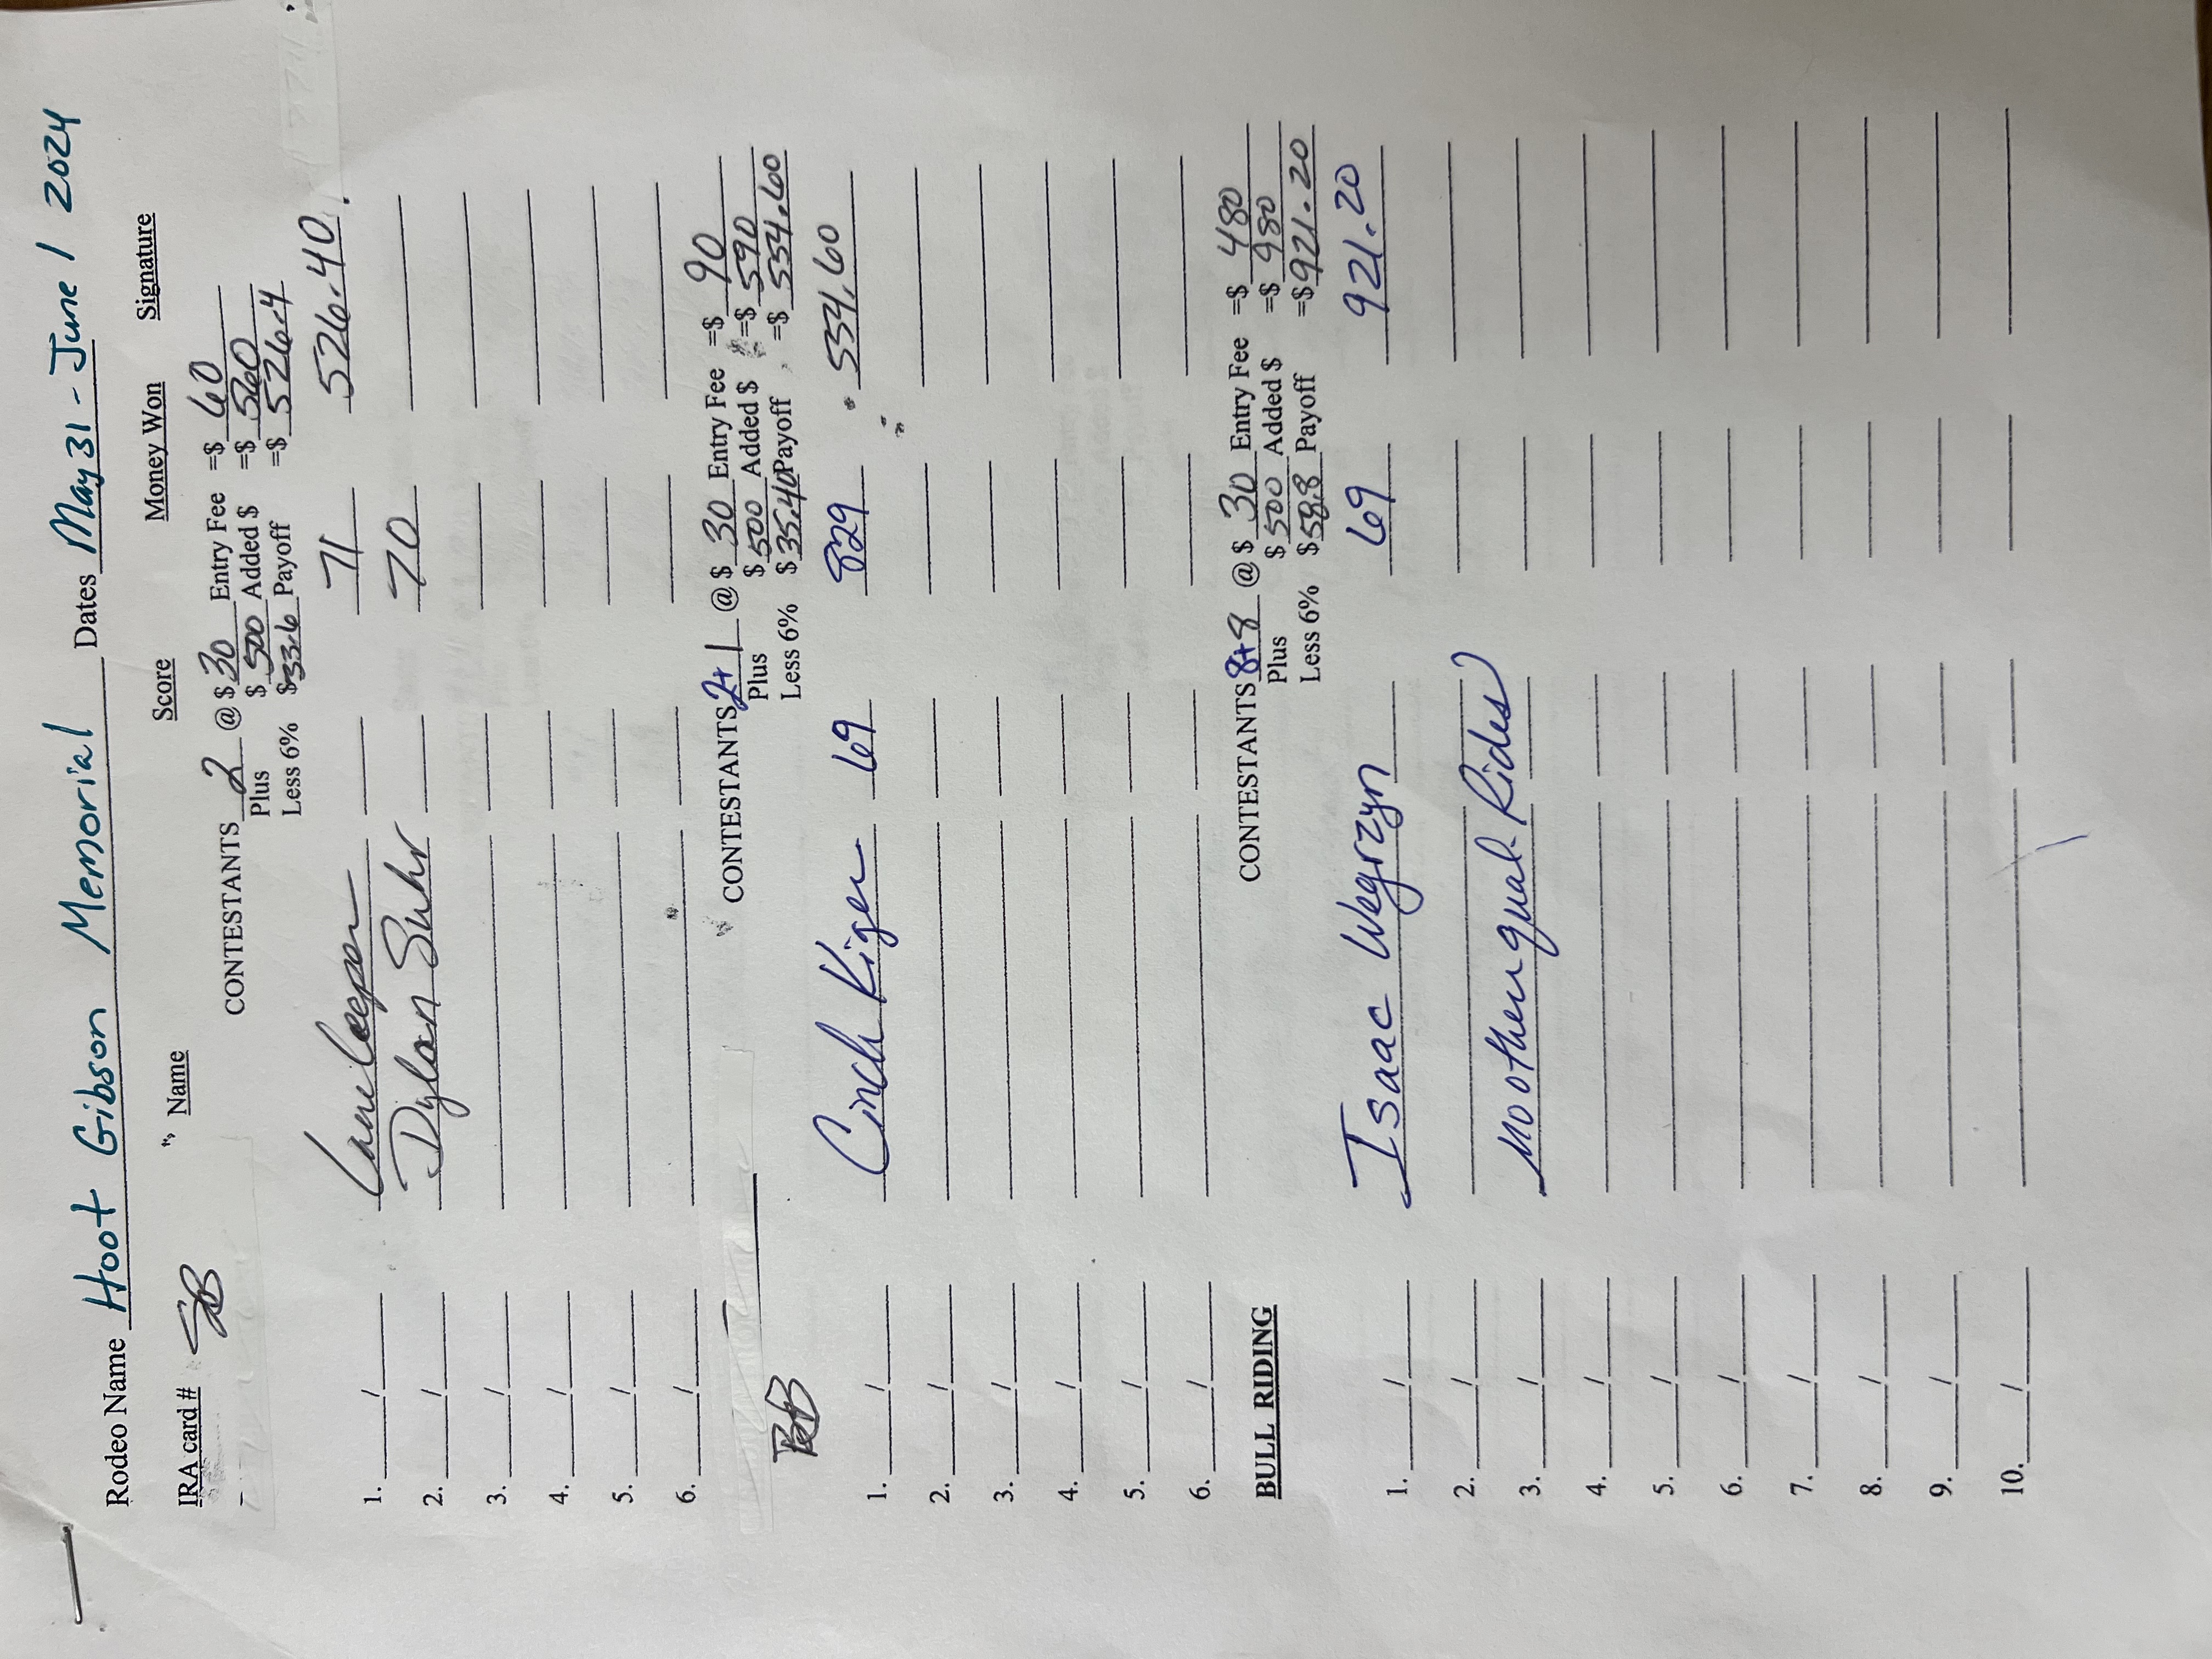 Rodeo Name Hoot Gibson Memorial Dates May 31 - June 1 2024
IRA card # Name Score Money Won Signature
SB
CONTESTANTS 2 @ $ 30 Entry Fee =$ 60
Plus $ 500 Added $ =$ 560
Less 6% $ 33.6 Payoff =$ 526.4
1. / Lane Leeper 71 526.40
2. / Dylan Suhr 70
3. /
4. /
5. /
6. /
CONTESTANTS 2+1 @ $ 30 Entry Fee =$ 90
Plus $ 500 Added $ =$ 590
Less 6% $ 35.40 Payoff =$ 554.60
BB
1. / Cinch Kiger 69 829 554.60
2. /
3. /
4. /
5. /
6. /
BULL RIDING CONTESTANTS 8+8 @ $ 30 Entry Fee =$ 480
Plus $ 500 Added $ =$ 980
Less 6% $ 58.8 Payoff =$ 921.20
1. / Isaac Wegrzyn 69 921.20
2. /
3. / no other qual. Rides
4. /
5. /
6. /
7. /
8. /
9. /
10. /